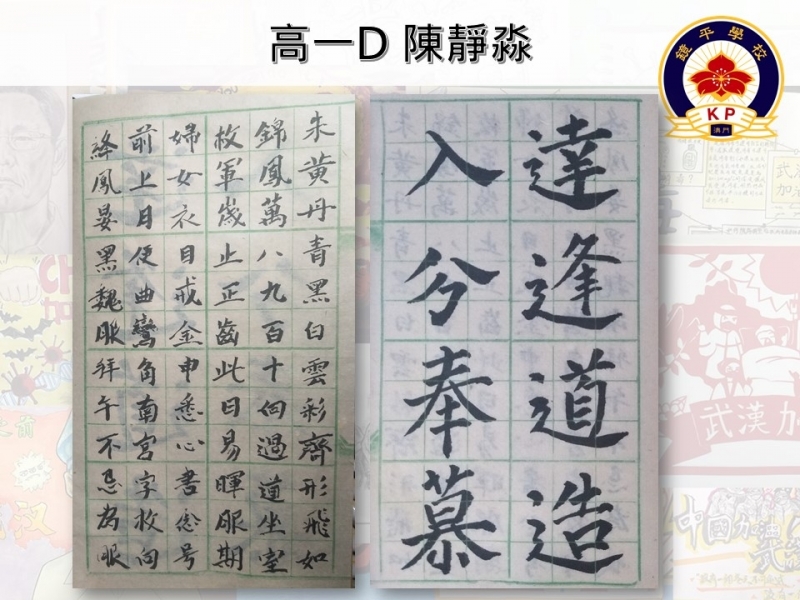 高一D 陳靜淼
鏡平學校
KP
澳門
朱黄丹青黑白雲彩齊形飛如
錦鳳萬八九百十向過道坐室
枚軍歲止正齒此日易暉服期
婦女衣目戒金申悉心書念号
前上目便曲鸞角南宮字救向
絳鳳晏黑魏眼拜午不忌為眼
達逢道造
入分奉慕
武漢加
中國加油